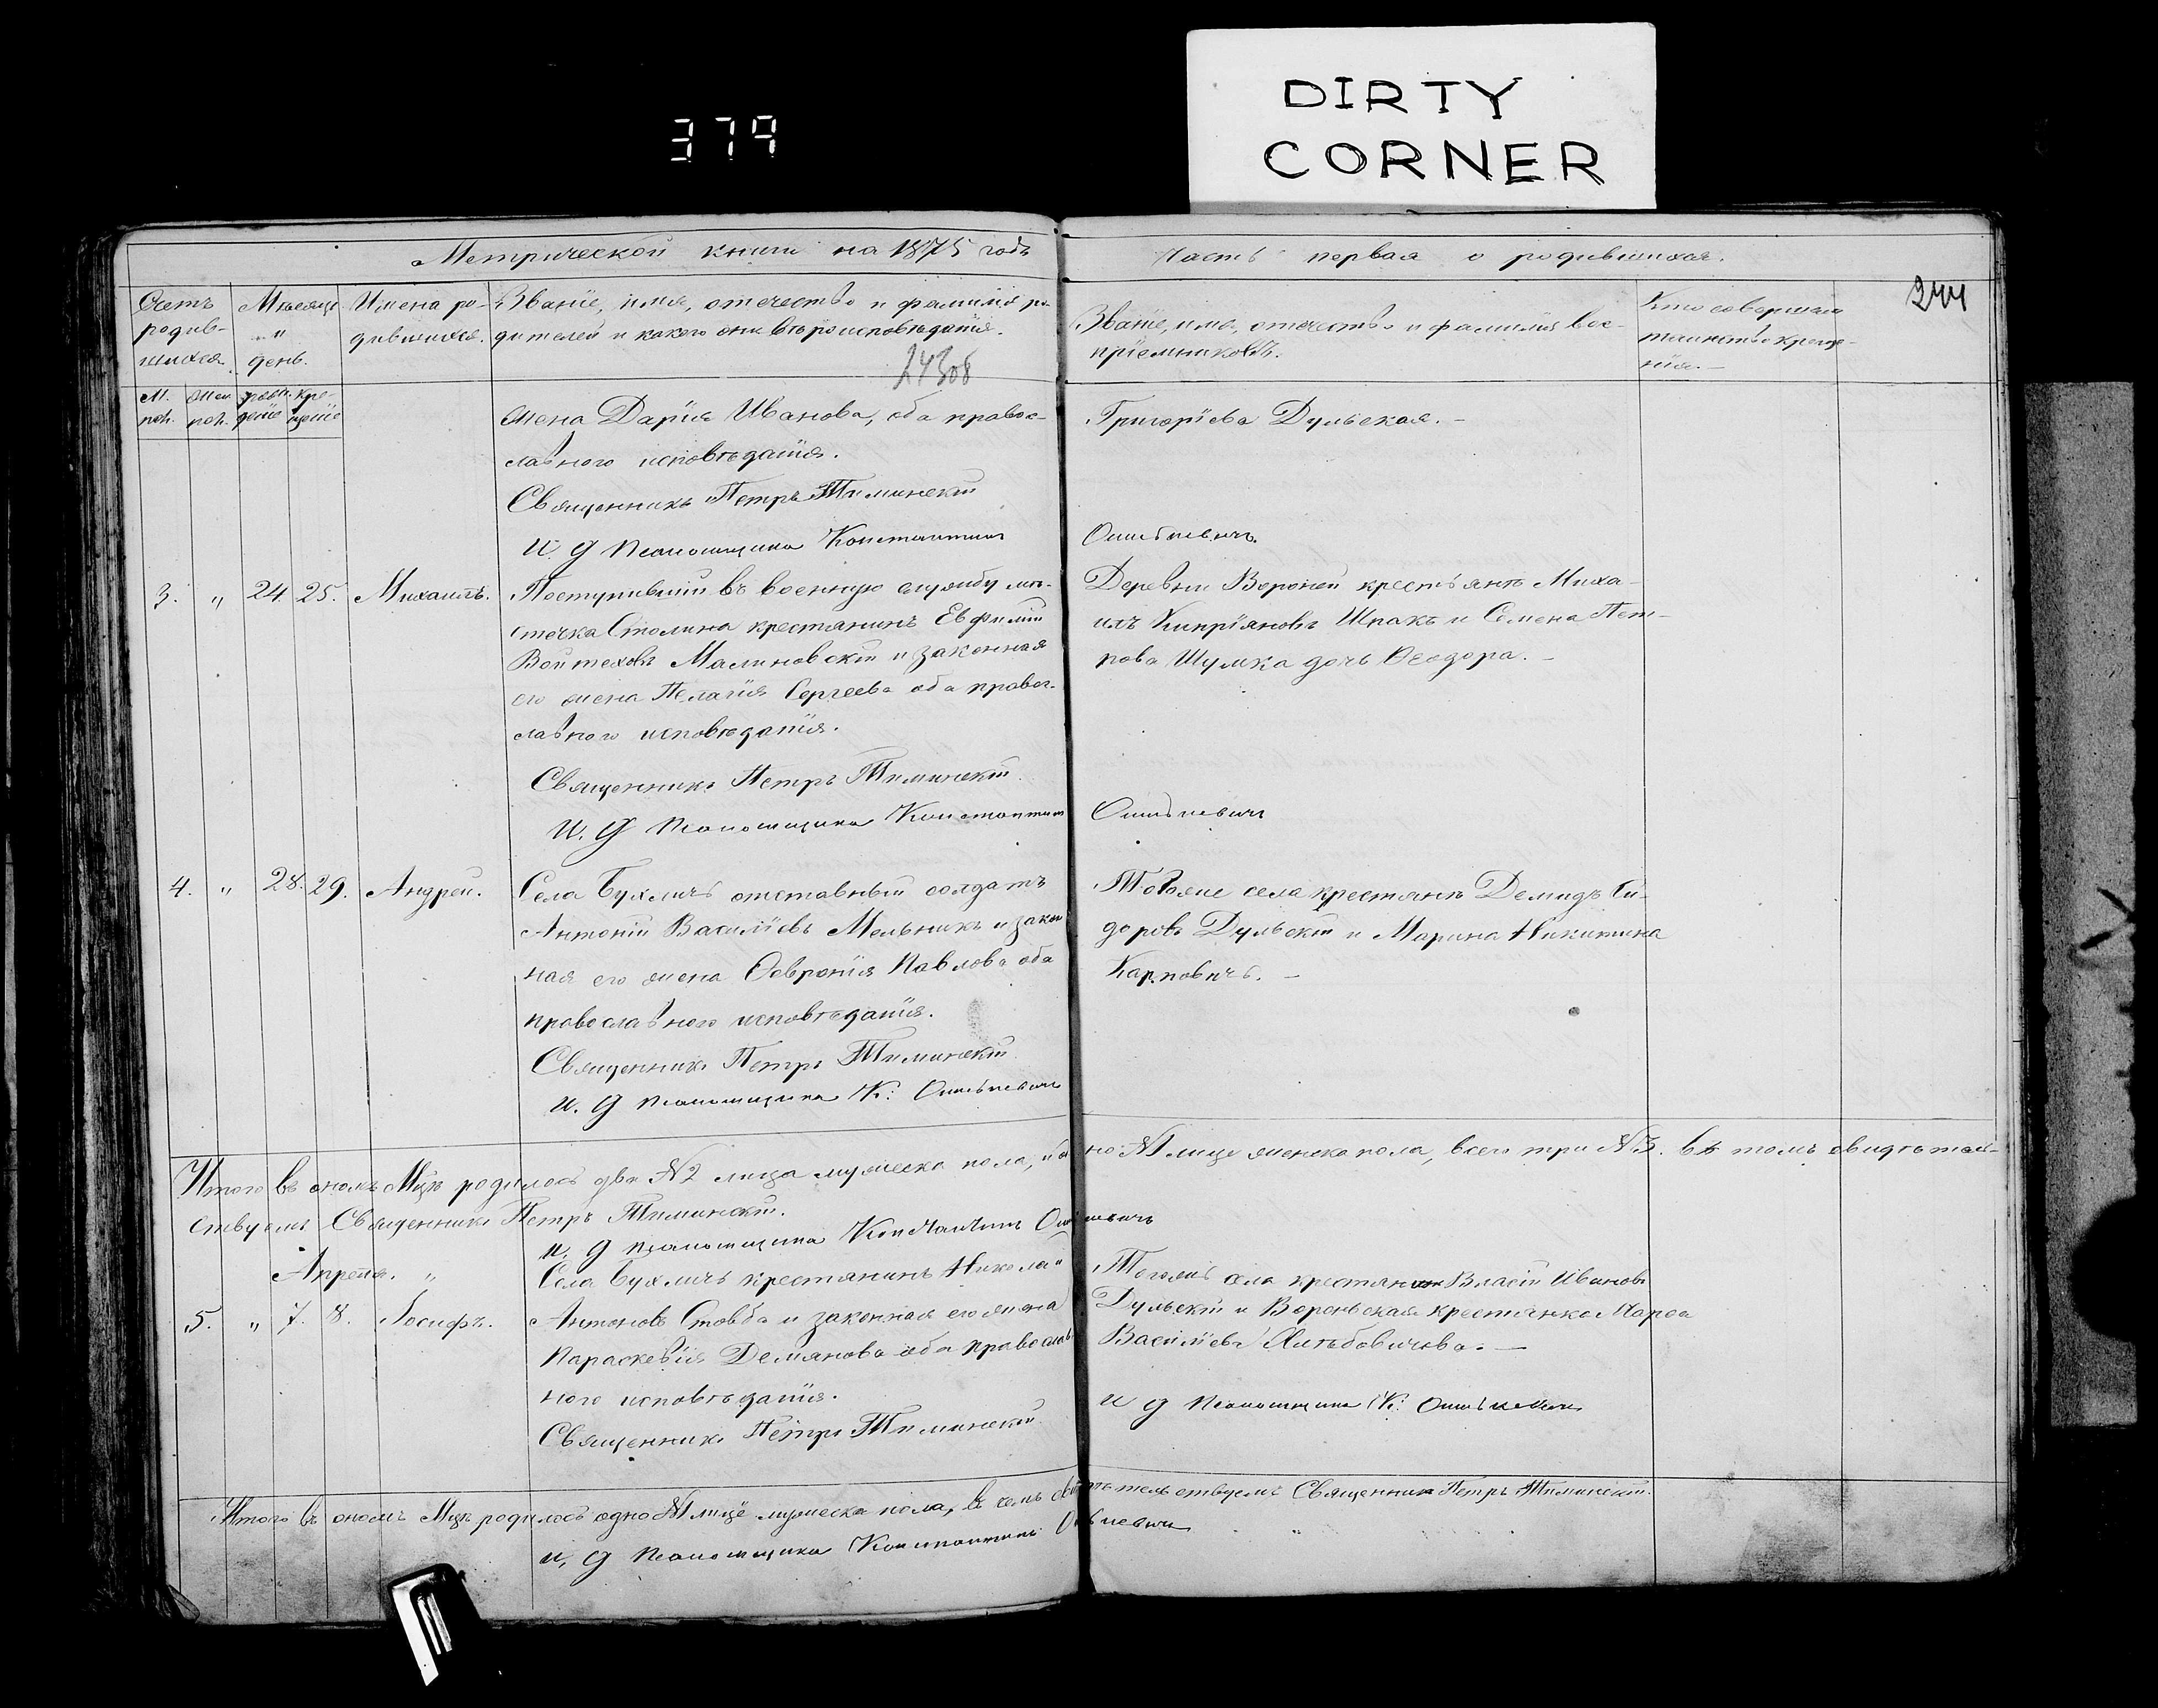 379
DIRTY
CORNER
Метрической книги на 1875 годъ
Часть первая о родившихся.
244
Счетъ родив-шихся.
Мѣсяцъ и день.
Имена ро-
дившихся.
Званіе, имя, отечество и фамилія ро-
дителей и какого они вѣроисповѣданія.
Званіе, имя, отечество и фамилія вос-
пріемниковъ.
Кто совершалъ
таинство креще-
нія.—
24308
М. пол. Жен. пол. рож деніе кре щеніе
жена Дарія Иванова, оба правос-
лавного исповѣданія.
Священникъ Петръ Тиминскій
И. Д Псаломщика Константинъ
Григоріева Дульская.—
3. „ 24. 25. Михаилъ.
Поступившій въ военную службу мѣ-
стечка Столина крестянинъ Евфимій
Войтеховъ Малиновскій и законная
его жена Пелагія Сергеева оба правос-
лавного исповѣданія.
Священникъ Петръ Тиминскій
И. Д Псаломщика Константинъ
Деревни Вороней крестьянъ Миха-
илъ Кипріяновъ Шпакъ и Семена Пет-
рова Шумка дочь Ѳеодора.—
4. „ 28. 29. Андрей.
Села Бухличъ отставный солдатъ
Антоній Василіевъ Мельникъ и закон
ная его жена Ѳевронія Павлова оба
православного исповѣданія.
Священникъ Петръ Тиминскій
И. Д Псаломщика К:
Тогоже села крестянъ Демидъ Си-
доровъ Дульскій и Марина Никитина
Карповичъ.—
Итого въ ономъ Мцѣ родилось два №2 лица мужеска пола, и одно №1 лице женска пола, всего три №3. въ томъ свидѣтель-
ствуемъ Священникъ Петръ Тиминскій.
И. Д Псаломщика Константинъ
Апреля. „
5. „ 7. 8. Іосифъ.
Села Бухличъ крестянинъ Николай
Антоновъ Стовба и законная его жена
Параскевія Демянова оба православ
ного исповѣданія.
Священникъ Петръ Тиминскій
Тогожъ села крестянинъ Власій Ивановъ
Дульскій и Вороньская крестянка Марѳа
Василіева
И Д Псаломщика К:
Итого въ ономъ Мцѣ родилось одно №1 лице мужеска пола, въ семъ свидѣтельствуемъ Священникъ Петръ Тиминскій.
И, Д Псаломщика Константинъ